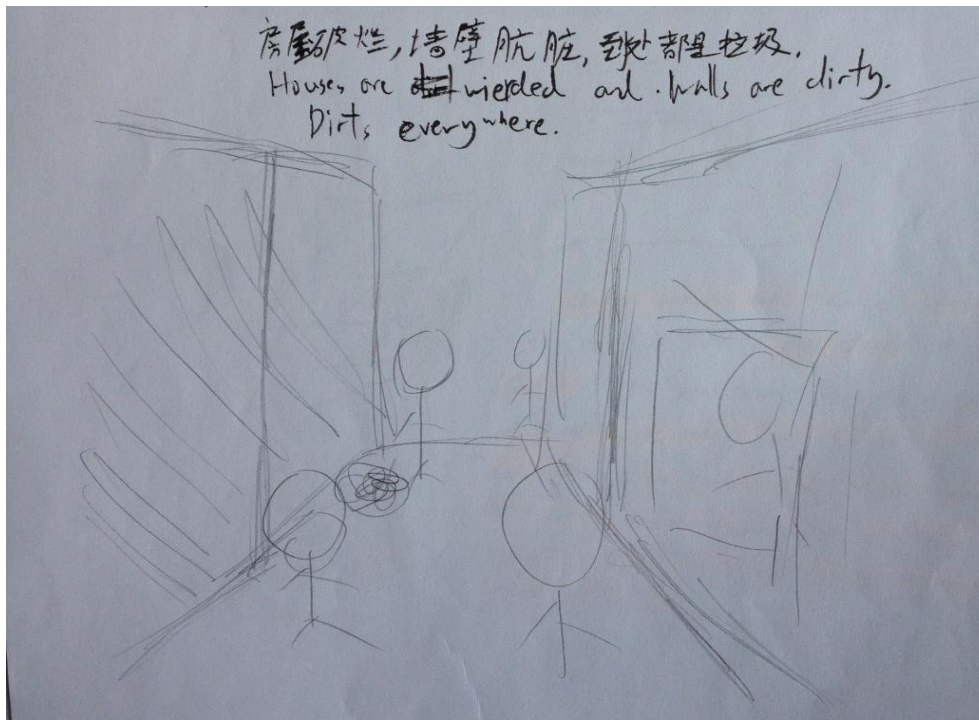 房屋破烂,墙壁肮脏,到处都是垃圾.
Houses are and walls are dirty.
Dirts everywhere.